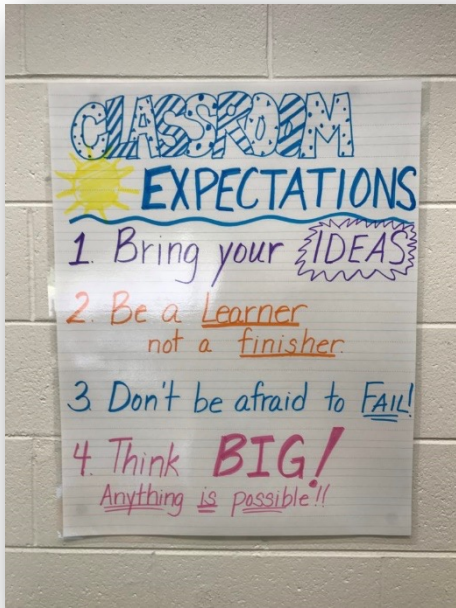 CLASSROOM
EXPECTATIONS
1. Bring your IDEAS
2. Be a Learner
not a finisher.
3 Don't be afraid to FAIL!
4. Think BIG!
Anything is possible!!